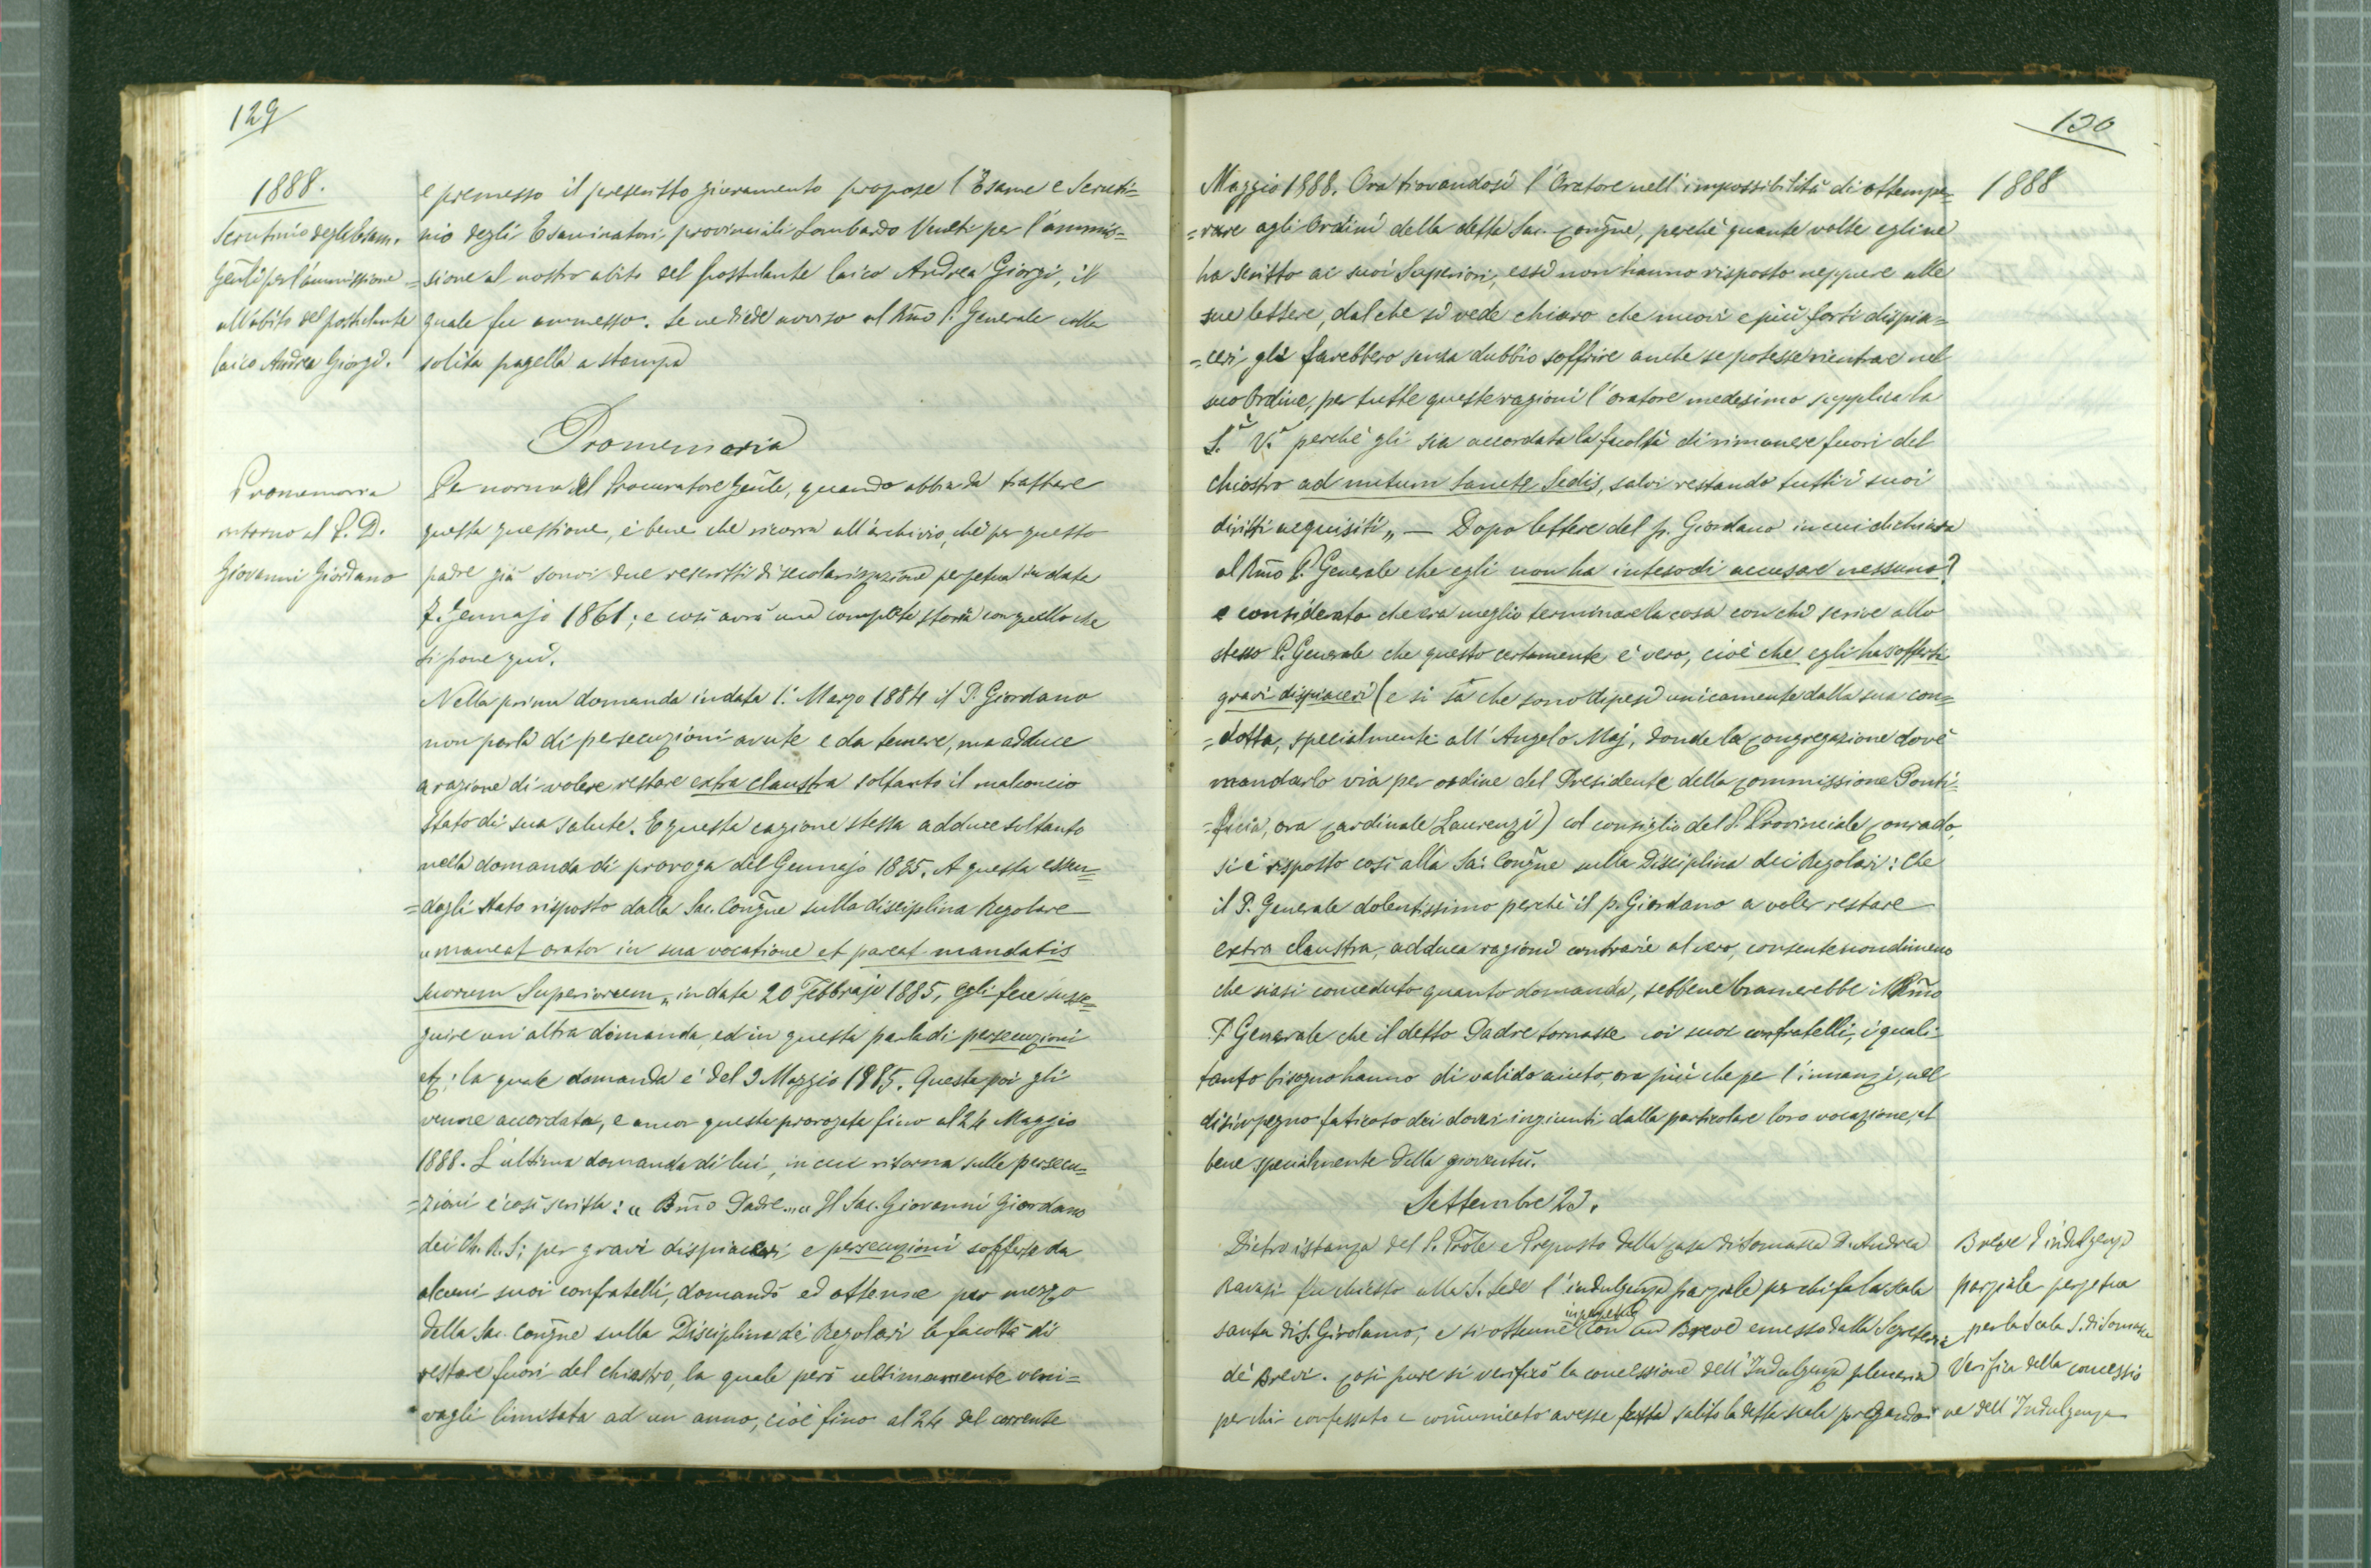 129
1888.
Scrutinio degli Esam.
Gen̄li per l'ammissione
all'abito del postulante
laico Andrea Giorgi.
e premesso il prescritto giuramento propose l'Esame e Scruti=
nio degli Esaminatori provinciali Lombardo Veneti per l'ammis=
=sione al nostro abito del postulante laico Andrea Giorgi, il
quale fu ammesso. Se ne diede avviso al Rm̄o P. Generale colla
solita pagella a stampa
Promemoria
Promemoria
intorno al P. D.
Giovanni Giordano
Per norma del Procuratore Gen̄le, quando abbia da trattare
questa questione, è bene che ricorra all'archivio, chè per questo
padre già sonvi due rescritti di secolarizzazione perpetua in data
7. Gennajo 1861; e così avrà una completa storia con quello che
si pone qui.
Nella prima domanda in data 1.° Marzo 1884 il P. Giordano
non parla di persecuzioni avute e da temere, ma adduce
a ragione di volere restare extra claustra soltanto il malconcio
stato di sua salute. E questa cagione stessa adduce soltanto
nella domanda di proroga del Gennajo 1885. A questa essen=
=dogli stato risposto dalla Sac. Cong̃ne sulla disciplina Regolare
"maneat orator in sua vocatione et pareat mandatis
suorum Superiorum" in data 20 Febbrajo 1885, egli fece susse=
guire un'altra domanda, ed in questa parla di persecuzioni
etc; la quale domanda è del 9 Maggio 1885. Questa poi gli
venne accordata, e ancor questa prorogata fino al 24 Maggio
1888. L'ultima domanda di lui, in cui ritorna sulle persecu=
=zioni è così scritta: "Bm̄o Padre." "Il Sac. Giovanni Giordano
dei Ch. R. S; per gravi dispiaceri e persecuzioni sofferte da
alcuni suoi confratelli, domandò ed ottenne per mezzo
della Sac. Cong̃ne sulla Disciplina dei Regolari la facoltà di
restare fuori del chiostro, la quale però ultimamente veni=
vagli limitata ad un anno, cioè fino al 24 del corrente
130
1888
Maggio 1888. Ora trovandosi l'Oratore nell'impossibilità di ottempe=
=rare agli Ordini della detta Sac. Cong̃ne, perchè quante volte egli ne
ha scritto ai suoi Superiori, essi non hanno risposto neppure alle
sue lettere, dal che si vede chiaro che nuovi e più forti dispia=
=ceri gli farebbero senza dubbio soffrire anche se potesse rientrare nel
suo Ordine, per tutte queste ragioni l'oratore medesimo supplica la
S.a V.a perchè gli sia accordata la facoltà di rimanere fuori del
chiostro ad nutum Sancte Sedis, salvi restando tutti i suoi
diritti acquisiti" — Dopo lettere del p. Giordano in cui dichiara
al Rm̄o P. Generale che egli non ha inteso di accusare nessuno?
e considerato che era meglio terminare la cosa con chi scrive allo
stesso P. Generale che questo certamente è vero, cioè che egli ha sofferti
gravi dispiaceri (e si sa che sono dipesi unicamente dalla sua con=
=dotta, specialmente all'Angelo Maj, donde la Congregazione dovè
mandarlo via per ordine del Presidente della Commissione Ponti=
=ficia, ora Cardinale Laurenzi) col consiglio del P. Provinciale Conrado,
si è risposto così alla Sac. Cong̃ne sulla Disciplina dei Regolari: Che
il P. Generale dolentissimo perchè il p. Giordano a voler restare
extra claustra, adduca ragioni contrarie al vero, consente nondimeno
che siasi conceduto quanto domanda, sebbene bramerebbe il Rm̄o
P. Generale che il detto Padre tornasse coi suoi confratelli, i quali
tanto bisogno hanno di valido aiuto, ora più che per l'innanzi, nel
disimpegno faticoso dei doveri ingiunti dalla particolare loro vocazione, al
bene specialmente della gioventù.
Settembre 23.
Breve d'indulgenza
parziale perpetua
per la Scala S. di Somasca
Verifica della concessio
ne dell'Indulgenza
Dietro istanza del P. Pr̃ole e Preposto della Casa di Somasca D. Andrea
Ravasi fu chiesto alla S. Sede l'indulgenza parziale per chi fa la scala
santa di S. Girolamo, e si ottenne in perpetuo con un Breve emesso dalla Segreteria
dei Brevi. Così pure si verificò la concessione dell'Indulgenza plenaria
per chi confessato e com̄unicato avesse salito la detta scala pregando